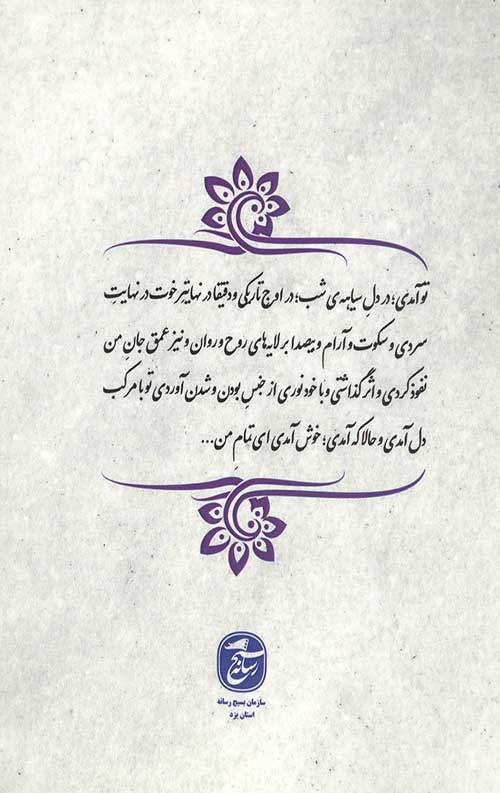 تو آمدی؛ در دلِ سیاهه‌ی شب؛ در اوجِ تاریکی و دقیقا در نهایتِ رخوت در نهایتِ
سردی و سکوت و آرام و بیصدا بر لایه‌های روح و روان و نیز عمقِ جانِ من
نفوذ کردی و اثر گذاشتی و با خود نوری از جنسِ بودن و شدن آوردی تو با مرکب
دل آمدی و حالا که آمدی؛ خوش آمدی ای تمامِ من...
بسیج
رسانه
سازمان بسیج رسانه
استان یزد